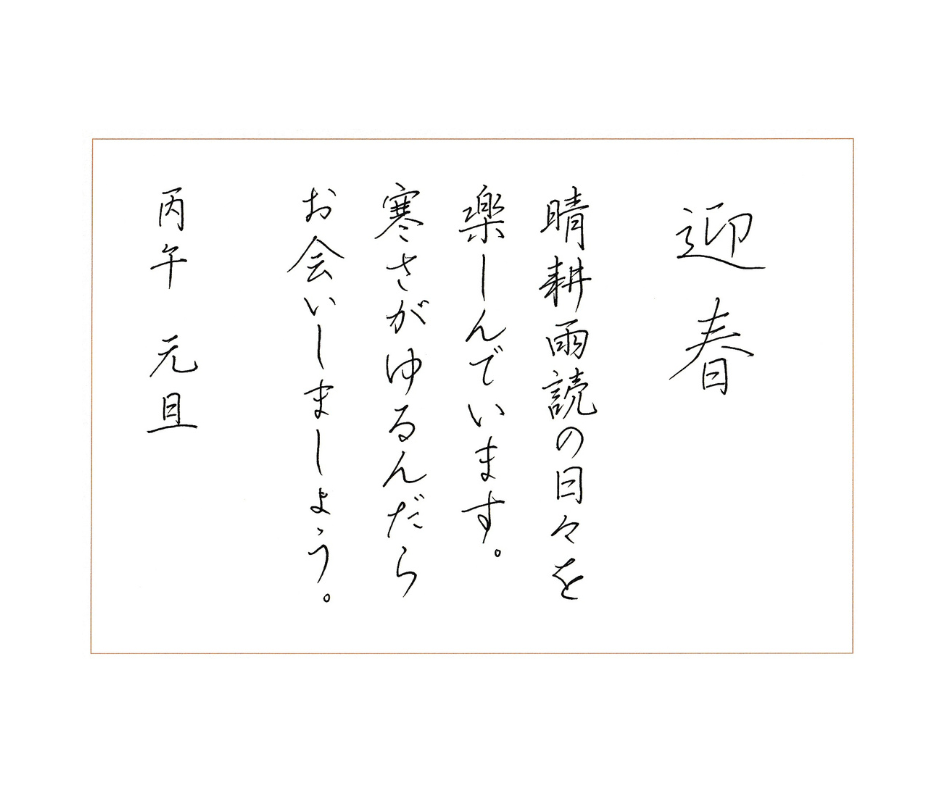 迎春
晴耕雨読の日々を
楽しんでいます。
寒さがゆるんだら
お会いしましょう。
丙午 元旦